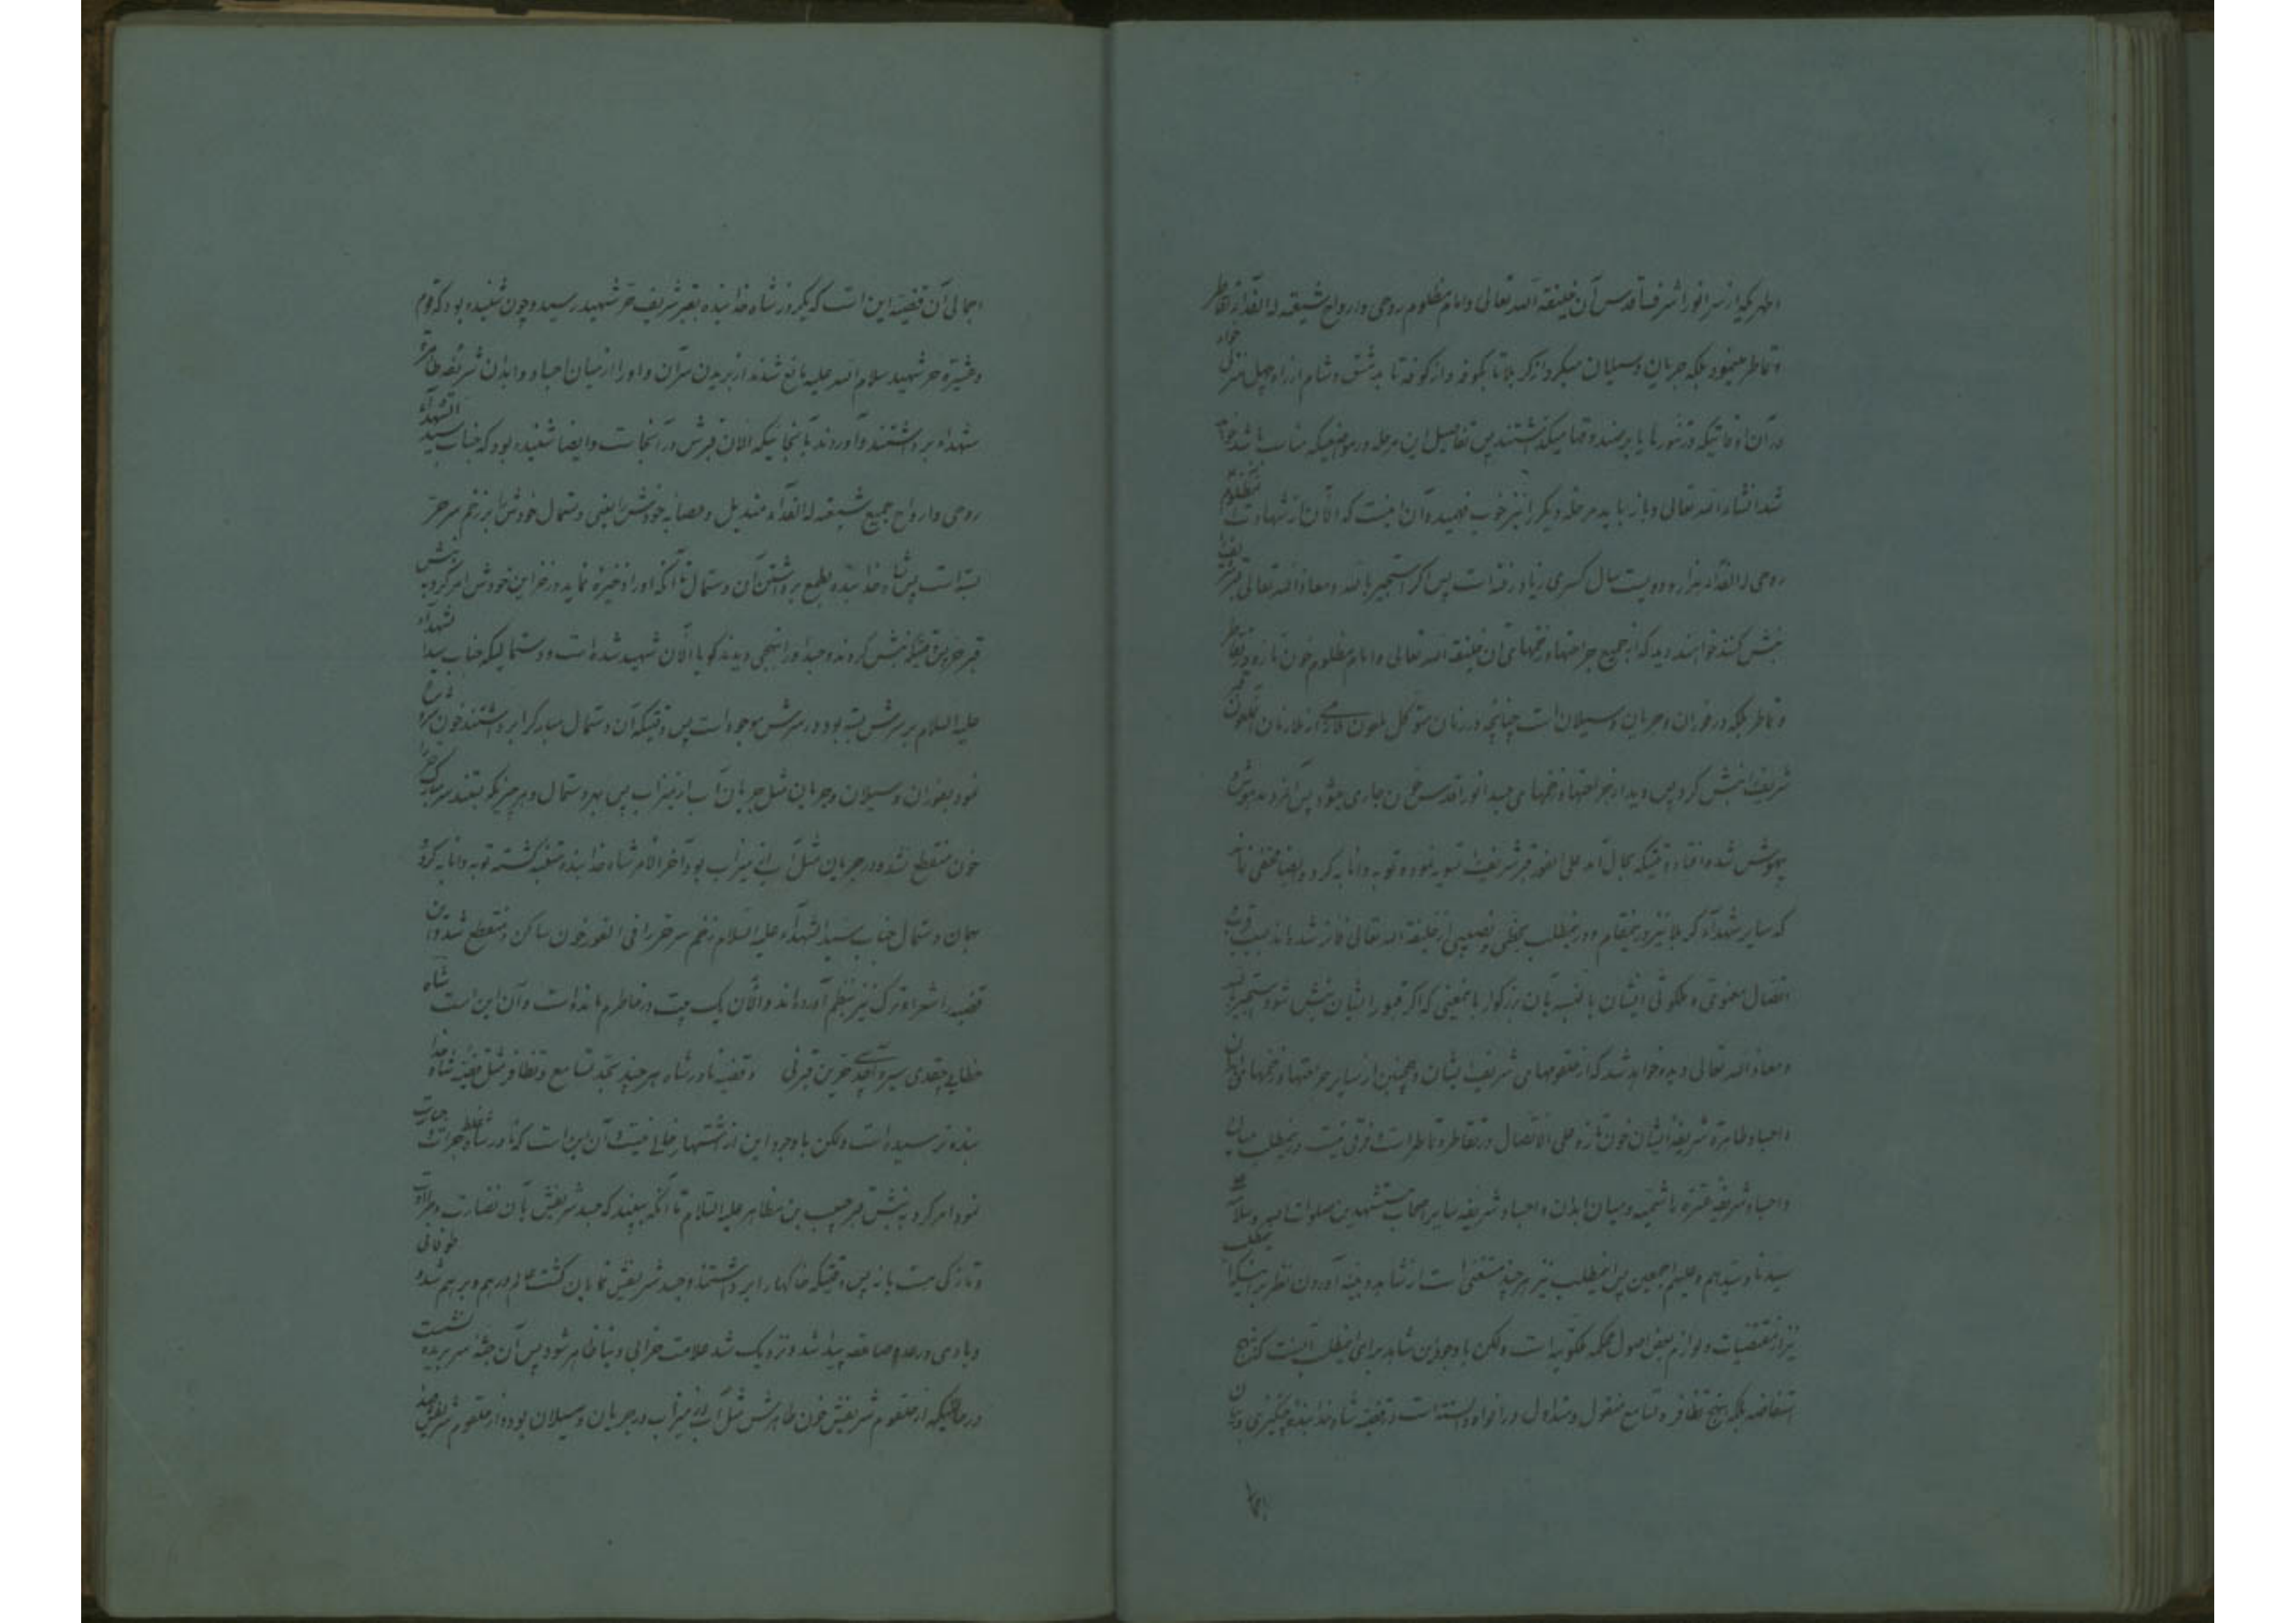 اطهر که از سر انور اشرف اقدس آن خلیفة الله تعالی و امام مظلوم روحی و ارواح شیعته له الفداء تقاطر
و تماطر مینمود بلکه جریان و سیلان میکرد از کربلا تا بکوفه و از کوفه تا بدمشق و شام از راه چهل منزل خواه
در آن اوقاتیکه در تنور یا پابرهنه و میگذشتند پس تفاصیل این مرحله در موضعیکه مناسب باشد خواهد
شد انشاء الله تعالی و باز باید مرحله دیگر را نیز خوب فهمید و آن اینست که الآن از شهادت آن مظلوم
روحی له الفداء هزار و دویست سال کسری زیاد رفته است پس اگر استجیر بالله و معاذ الله تعالی قبر شریف را
نبش کنند خواهند دید که از جمیع جراحتها و زخمهای آن خلیفة الله تعالی و امام مظلوم خون تازه در تقاطر
و تماطر بلکه در فوران و جریان و سیلان است چنانچه در زمان متوکل ملعون از ملازمان آن ملعون قبر
شریف را نبش کرد پس دید از جراحتها و زخمهای جسد انور اقدس خون جاری میشود پس آنمرد مدهوش و
بیهوش شده افتاد وقتیکه بحال آمد علی الفور قبر شریف را تسویه نمود و توبه و انابه کرد و ایضا مخفی نماند
که سایر شهداء کربلا نیز در اینمقام و در اینمطلب بحظی و نصیبی از خلیفة الله تعالی فائز شده‌اند بسبب قرب و
اتصال معنوی و ملکوتی ایشان بالنسبه بآن بزرگوار باینمعنی که اگر قبور ایشان نبش شود استجیر بالله
و معاذ الله تعالی دیده خواهد شد که از حلقومهای شریف ایشان و همچنین از سایر جراحتها و زخمهای ابدان
و اجساد طاهره شریفه ایشان خون تازه علی الاتصال در تقاطر و تماطر است و فرقی نیست در اینمطلب میان ابدان
و اجساد شریفه عترة هاشمیه و میان ابدان و اجساد شریفه سایر اصحاب مستشهدین صلوات الله و سلامه علی
سیدنا و سیدهم و علیهم اجمعین پس اینمطلب نیز هر چند مستغنی است از شاهد و بینه آوردن نظر بر اینکه اینمطلب
نیز از مقتضیات و لوازم بعض اصول محکمه ملکوتیه است ولکن با وجود این شاهد برای اینمطلب آنست که بنهج
استفاضه بلکه بنهج تظافر و تسامع منقول و متداول در افواه و السنه است در قضیه شاه خدابنده چنگیزی و بیان
اجمالی
اجمالی آن قضیه این است که یکروز شاه خدابنده بقبر شریف حر شهید رسید و چون شنیده بود که قوم
و عشیره حر شهید سلام الله علیه مانع شدند از بریدن سر آن و او را از میان اجساد و ابدان شریفه طاهره
شهداء برداشتند و آوردند بآنجائیکه الان قبرش در آنجاست و ایضا شنیده بود که جناب سید الشهداء
روحی و ارواح جمیع شیعته له الفداء مندیل و عصابه خودش را یعنی دستمال خودش را بر زخم سر حر
بسته است پس شاه خدابنده بطمع برداشتن آن دستمال تا آنکه او را ذخیره نماید در خزاین خودش امر کرد به نبش
قبر حر پس وقتیکه نبش کردند و جسد او را بنحوی دیدند که گویا الآن شهید شده است و دستمالیکه جناب سید الشهداء
علیه السلام بر سرش بسته بود در سرش موجود است پس وقتیکه آن دستمال مبارک را برداشتند خون شروع
نمود بفوران و سیلان و جریان مثل جریان آب از میزاب پس بهر دستمال و بهر چیز که بستند سر مبارک حر را
خون منقطع نشد و در جریان مثل آب از میزاب بود آخر الامر شاه خدابنده متنبه گشته توبه و انابه کرد و
همان دستمال جناب سید الشهداء علیه السلام زخم سر حر را فی الفور خون ساکن و منقطع شد و این
قضیه را شعراء ترک نیز بنظم آورده‌اند و الآن یک بیت در خاطرم مانده است و آن این است شاه
خطایی چقدی سیره آچدی حرین قبرنی و قضیه نادرشاه هر چند بحد تسامع و تظافر مثل قضیه شاه خدا
بنده نرسیده است ولکن با وجود این از اشتهار خالی نیست و آن این است که نادر شاه غلط و جرات و جسارت
نمود امر کرد به نبش قبر حبیب بن مظاهر علیه السلام تا آنکه ببیند که جسد شریفش بآن نضارت و طراوت
و تازگی هست یا نه پس وقتیکه خاکها را برداشتند و جسد شریفش نمایان گشت عالم درهم و برهم شد و طوفانی
و بادی و رعد و صاعقه پیدا شد و نزدیک شد علامت خرابی دنیا ظاهر شود پس آن جثه سر بریده نشست
در حالتیکه از حلقوم شریفش خون طاهرش مثل آب از میزاب در جریان و سیلان بود و از حلقوم شریفش صدا